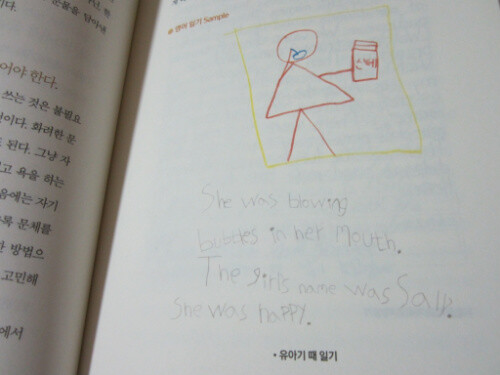 어야 한다.
쓰는 것은 불필요
이다. 화려한 문
된다. 그냥 자
고 욕을 하는
음에는 자기
록 문체를
한 방법으
고민해
에서
영어 일기 Sample
She was blowing
bubbles in her mouth.
The girl's name was Sally.
She was happy.
• 유아기 때 일기